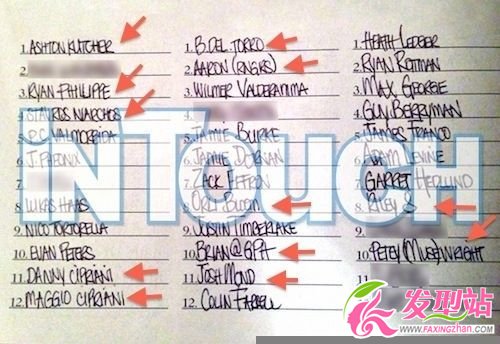 1. ASHTON KUTCHER
2.
3. RYAN PHILLIPPE
4. STAVROS NIARCHOS
5. P.C. VALMORBIDA
6. J. PHEONIX
7.
8. LUKAS HAAS
9. NICO TORTORELLA
10. EVAN PETERS
11. DANNY CIPRIANI
12. MAGGIO CIPRIANI
1. B. DEL TORRO
2. AARON (RNGRS)
3. WILMER VALDERAMA
4.
5. JAMIE BURKE
6. JAMIE DORNAN
7. ZACK EFFRON
8. ORLY BLOOM
9. JUSTIN TIMBERLAKE
10. BRIAN@GPA
11. JOSH MOND
12. COLIN FARRELL
1. HEATH LEDGER
2. RYAN ROTTMAN
3. MAX GEORGE
4. GUY BERRYMAN
5. JAMES FRANCO
6. ADAM LEVINE
7. GARRET HEDLUND
8. RILEY S
9.
10. PETEY (MUSE) WRIGHT
11.
12.
INTOUCH
发型站
WWW.FAXINGZHAN.COM